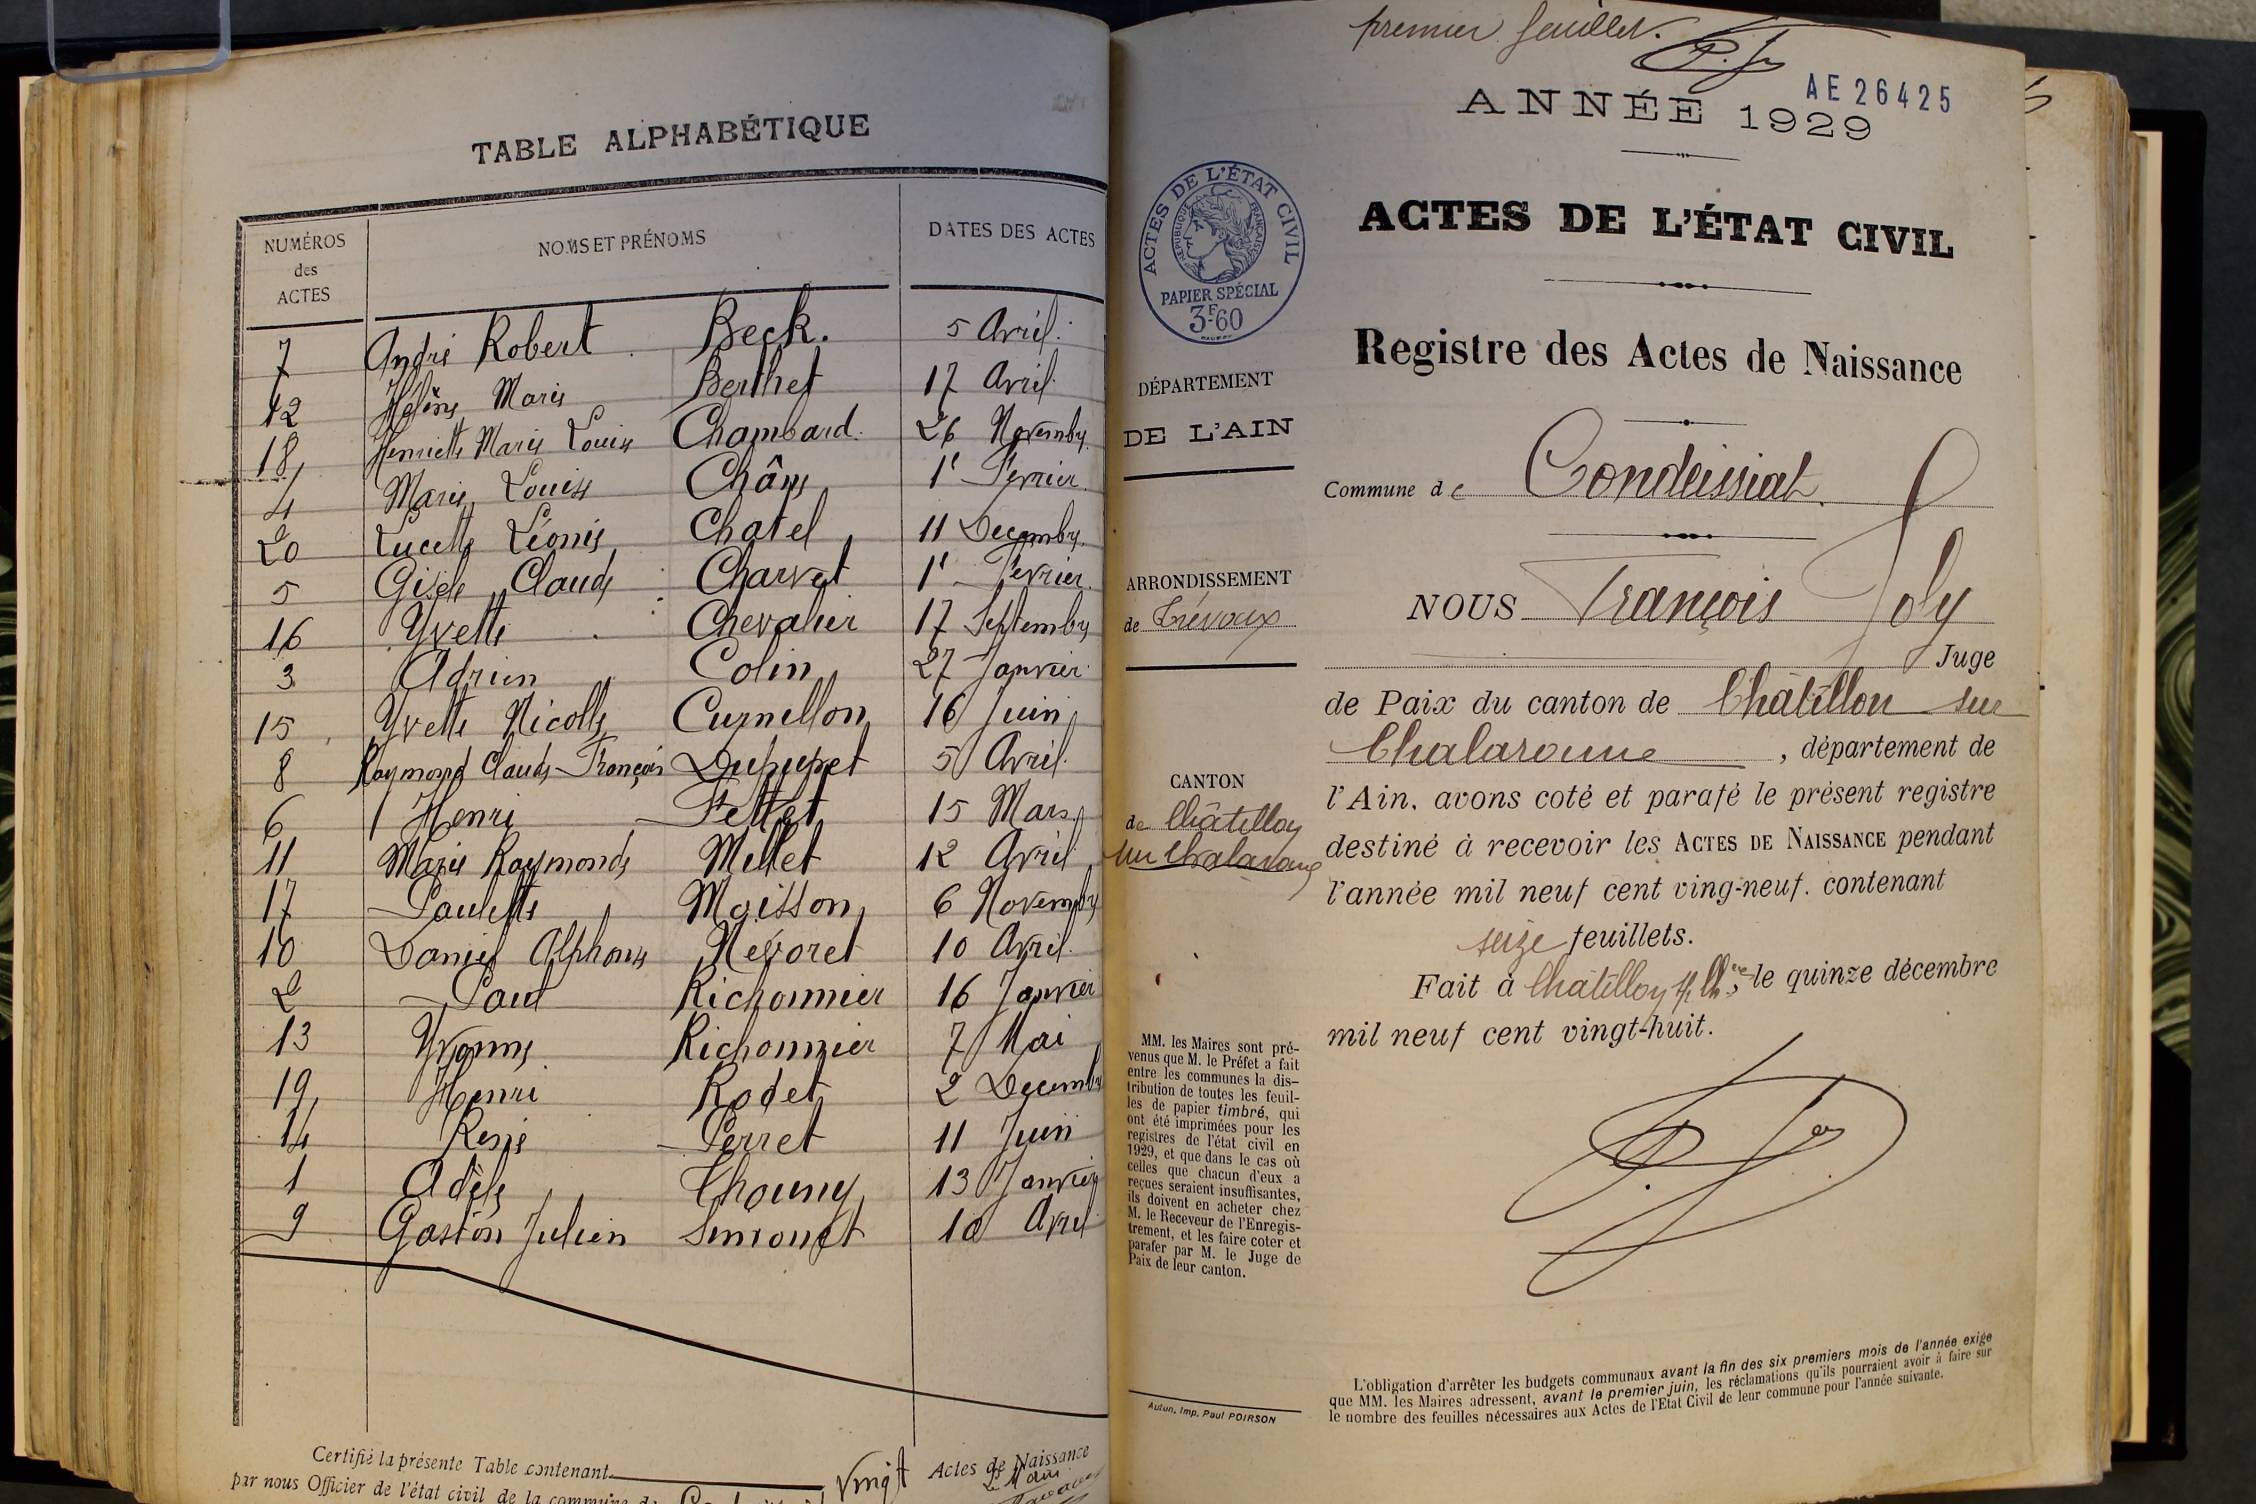 TABLE ALPHABÉTIQUE
NUMÉROS des ACTES NOMS ET PRÉNOMS DATES DES ACTES
7 André Robert Beck. 5 Avril.
12 Hélène Marie Berthet 17 Avril
18 Henriette Marie Louise Chambard. 26 Novembre
4 Marie Louise Châne 1r Fevrier
20 Lucette Léonie Chatel 11 Decembre
5 Gisèle Claude Charvet 1r Fevrier
16 Yvette Chevalier 17 Septembre
3 Adrien Colin 27 Janvier
15 Yvette Nicolle Curnillon 16 Juin
8 Raymond Claude François Dupupet 5 Avril
6 Henri Fettet 15 Mars
11 Marie Raymonde Millet 12 Avril
17 Paulette Moisson 6 Novembre
10 Daniel Alphonse Nevoret 10 Avril
2 Paul Richonnier 16 Janvier
13 Yvonne Richonnier 7 Mai
19 Henri Rodet 2 Decembre
14 René Perret 11 Juin
1 Adèle 13 Janvier
9 Gaston Julien Simonet 10 Avril
Certifié la présente Table contenant vingt Actes de Naissance
par nous Officier de l'état civil de la commune de
premier feuillet.
AE 26425
ANNÉE 1929
ACTES DE L'ÉTAT CIVIL
RÉPUBLIQUE FRANÇAISE
PAPIER SPÉCIAL
3F60
ACTES DE L'ÉTAT CIVIL
Registre des Actes de Naissance
DÉPARTEMENT
DE L'AIN
ARRONDISSEMENT
de Trévoux
CANTON
de Châtillon
sur Chalaronne
MM. les Maires sont pré-
venus que M. le Préfet a fait
entre les communes la dis-
tribution de toutes les feuil-
les de papier timbré, qui
ont été imprimées pour les
registres de l'état civil en
1929, et que dans le cas où
celles que chacun d'eux a
reçues seraient insuffisantes,
ils doivent en acheter chez
M. le Receveur de l'Enregis-
trement, et les faire coter et
parafer par M. le Juge de
Paix de leur canton.
Autun, Imp. Paul POIRSON
Commune de Condeissiat.
NOUS François Joly
Juge
de Paix du canton de Châtillon sur
Chalaronne, département de
l'Ain, avons coté et parafé le présent registre
destiné à recevoir les ACTES DE NAISSANCE pendant
l'année mil neuf cent ving-neuf. contenant
seize feuillets.
Fait à Châtillon s/ Chne, le quinze décembre
mil neuf cent vingt-huit.
L'obligation d'arrêter les budgets communaux avant la fin des six premiers mois de l'année exige
que MM. les Maires adressent, avant le premier juin, les réclamations qu'ils pourraient avoir à faire sur
le nombre des feuilles nécessaires aux Actes de l'Etat Civil de leur commune pour l'année suivante.